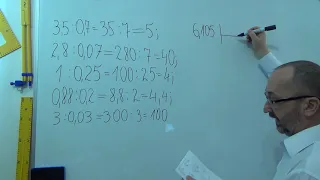 3,5 : 0,7 = 35 : 7 = 5;
2,8 : 0,07 = 280 : 7 = 40;
1 : 0,25 = 100 : 25 = 4;
0,88 : 0,2 = 8,8 : 2 = 4,4;
3 : 0,03 = 300 : 3 = 100
6,105